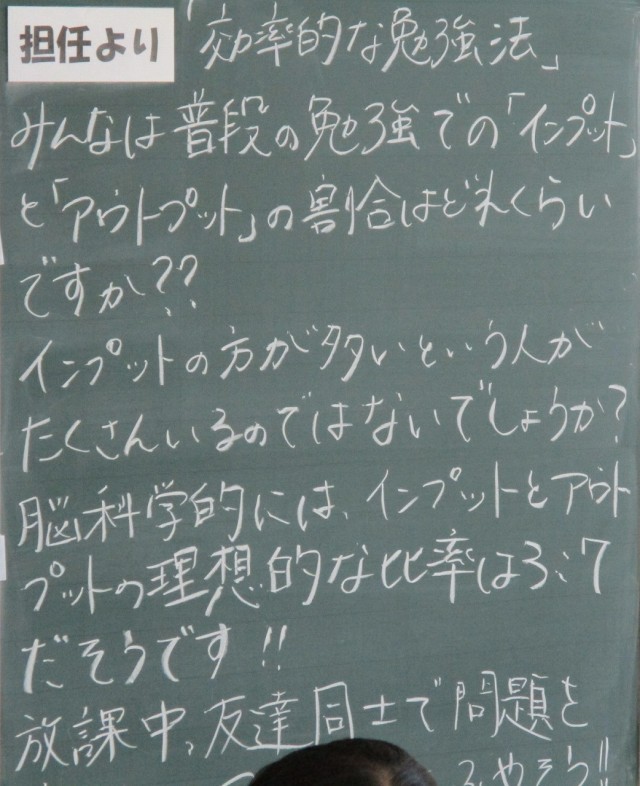 担任より 「効率的な勉強法」
みんなは普段の勉強での「インプット」
と「アウトプット」の割合はどれくらい
ですか??
インプットの方が多いという人が
たくさんいるのではないでしょうか?
脳科学的には、インプットとアウト
プットの理想的な比率は3:7
だそうです!!
放課中、友達同士で問題を
ふやそう!!